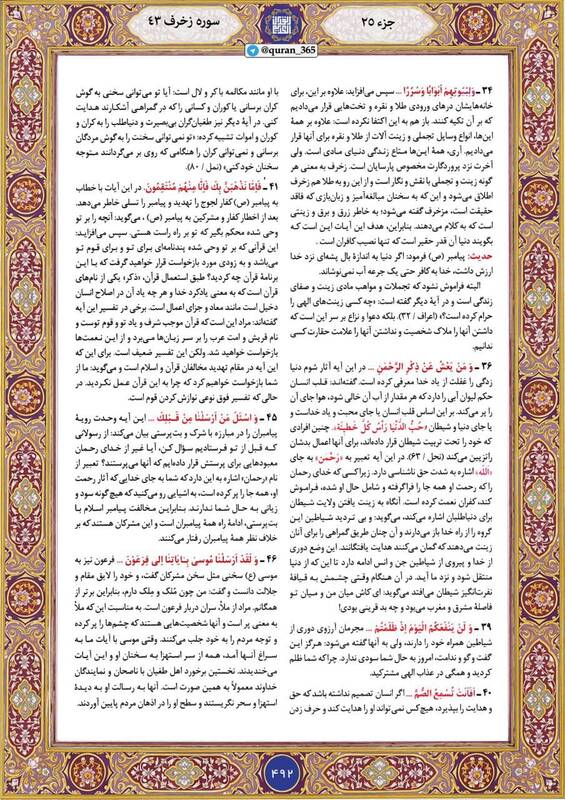 جزء ۲۵
سوره زخرف ۴۳
@quran_365
۳۴ ـ وَلِبُیُوتِهِمْ أَبْوَابًا وَسُرُرًا ... سپس می‌افزاید: علاوه بر این، برای
خانه‌هایشان درهای ورودی طلا و نقره و تخت‌هایی قرار می‌دادیم
که بر آن تکیه کنند. باز هم به این اکتفا نکرده است: علاوه بر همهٔ
این‌ها، انواع وسایل تجملی و زینت آلات از طلا و نقره برای آنها قرار
می‌دادیم. آری، همهٔ این‌ها متاع زندگی دنیای مادی است. ولی
آخرت نزد پروردگارت مخصوص پارسایان است. زخرف به معنی هر
گونه زینت و تجملی با نقش و نگار است و از این رو به طلا هم زخرف
اطلاق می‌شود و این که به سخنان مبالغه‌آمیز و زبان‌بازی که فاقد
حقیقت است، مزخرف گفته می‌شود؛ به خاطر زرق و برق و زینتی
است که به کلام می‌دهند. بنابراین، هدف این آیات این است که
بگویند دنیا آن قدر حقیر است که تنها نصیب کافران است .
حدیث: پیامبر (ص) فرمود: اگر دنیا به اندازهٔ بال پشه‌ای نزد خدا
ارزش داشت، خدا به کافر حتی یک جرعه آب نمی‌نوشاند.
البته فراموش نشود که تجملات و مواهب مادی زینت و صفای
زندگی است و در آیهٔ دیگر گفته است: «چه کسی زینت‌های الهی را
حرام کرده است؟» (اعراف / ۳۲). بلکه دعوا و نزاع بر سر این است که
داشتن آنها را ملاک شخصیت و نداشتن آنها را علامت حقارت کسی
ندانیم.
۳۶ ـ وَ مَنْ یَعْشُ عَنْ ذِکْرِ الرَّحْمَنِ ... در این آیه آثار شوم دنیا
زدگی را غفلت از یاد خدا معرفی کرده است. گفته‌اند: قلب انسان
حکم لیوان آبی را دارد که هر مقدار از آب آن خالی شود، هوا جای آن
را پر می‌کند. بر این اساس قلب انسان یا جای محبت و یاد خداست و
یا جای دنیا و شیطان «حُبُّ الدُّنْیَا رَأْسُ کُلِّ خَطِیئَةٍ». چنین افرادی
که خود را تحت تربیت شیطان قرار داده‌اند، برای آنها اعمال بدشان
را تزیین می‌کند (نحل / ۶۳). در این آیه تعبیر به «رَحْمَنِ» به جای
«الله» اشاره به شدت حق ناشناسی دارد. زیرا کسی که خدای رحمان
را که رحمت او همه جا را فراگرفته و شامل حال او شده، فراموش
کند، کفران نعمت کرده است. آنگاه به زینت یافتن ولایت شیطان
برای دنیاطلبان اشاره می‌کند، می‌گوید: و بی تردید شیاطین این
گروه را از راه خدا باز می‌دارند و آن چنان طریق گمراهی را برای آنان
زینت می‌دهند که گمان می‌کنند هدایت یافتگانند. این وضع دوری
از خدا و پیروی از شیاطین جن و انس ادامه دارد تا این که از دنیا
منتقل شود و نزد ما آید. در آن هنگام وقتی چشمش به قیافهٔ
نفرت‌انگیز شیطان می‌افتد می‌گوید: ای کاش میان من و میان تو
فاصلهٔ مشرق و مغرب می‌بود و چه بد قرینی بودی!
۳۹ ـ وَ لَنْ یَنْفَعَکُمُ الْیَوْمَ إِذْ ظَلَمْتُمْ ... مجرمان آرزوی دوری از
شیاطین همراه خود را دارند، ولی به آنها گفته می‌شود: هرگز این
گفت و گو و ندامت، امروز به حال شما سودی ندارد. چرا که شما ظلم
کردید و همگی در عذاب الهی مشترکید.
۴۰ ـ أَفَأَنْتَ تُسْمِعُ الصُّمَّ ... اگر انسان تصمیم نداشته باشد که حق
و هدایت را بپذیرد، هیچ‌کس نمی‌تواند او را هدایت کند و حرف زدن
با او مانند مکالمه با کر و لال است: آیا تو می‌توانی سخنی به گوش
کران برسانی یا کوران و کسانی را که در گمراهی آشکارند هدایت
کنی. در آیهٔ دیگر نیز طغیان‌گران بی‌بصیرت و دنیاطلب را به کران و
کوران و اموات تشبیه کرده: «تو نمی‌توانی سخنت را به گوش مردگان
برسانی و نمی‌توانی کران را هنگامی که روی بر می‌گردانند متوجه
سخنان خود کنی» (نمل / ۸۰).
۴۱ ـ فَإِمَّا نَذْهَبَنَّ بِکَ فَإِنَّا مِنْهُمْ مُنْتَقِمُونَ. در این آیات با خطاب
به پیامبر (ص) کفار لجوج را تهدید و پیامبر را تسلی خاطر می‌دهد.
بعد از اخطار کفار و مشرکین به پیامبر (ص) ، می‌گوید: آنچه را بر تو
وحی شده محکم بگیر که تو بر راه راست هستی. سپس می‌افزاید:
این قرآنی که بر تو وحی شده پندنامه‌ای برای تو و برای قوم تو
می‌باشد و به زودی مورد بازخواست قرار خواهید گرفت که با این
برنامهٔ قرآن چه کردید؟ طبق استعمال قرآن، «ذکر» یکی از نام‌های
قرآن است که به معنی یادکرد خدا و هر چه یاد آن در اصلاح انسان
دخیل است مانند معاد و جزای اعمال است. برخی در تفسیر این آیه
گفته‌اند: مراد این است که قرآن موجب شرف و یاد تو و قوم توست و
نام قریش و امت عرب را بر سر زبان‌ها می‌برد و از این نعمت‌ها
بازخواست خواهید شد. ولکن این تفسیر ضعیف است. برای این که
این آیه در مقام تهدید مخالفان قرآن و اسلام است و می‌گوید: ما از
شما بازخواست خواهیم کرد که چرا به این قرآن عمل نکردید. در
حالی که تفسیر فوق نوعی نوازش کردن قوم است.
۴۵ ـ وَ اسْئَلْ مَنْ أَرْسَلْنَا مِنْ قَبْلِکَ ... این آیه وحدت رویهٔ
پیامبران را در مبارزه با شرک و بت‌پرستی بیان می‌کند: از رسولانی
که قبل از تو فرستادیم سؤال کن، آیا غیر از خدای رحمان
معبودهایی برای پرستش قرار داده‌ایم که آنها می‌پرستند؟ تعبیر از
نام «رحمان» اشاره به این دارد که شما به جای خدایی که آثار رحمت
او، همه جا را پر کرده است، به اشیایی رو می‌کنید که هیچ‌گونه سود و
زیانی به حال شما ندارند. بنابراین مخالفت پیامبر اسلام با
بت‌پرستی، ادامهٔ راه همهٔ پیامبران است و این مشرکان هستند که بر
خلاف نظر همهٔ پیامبران رفتار می‌کنند.
۴۶ ـ وَ لَقَدْ أَرْسَلْنَا مُوسَی بِآیَاتِنَا إِلَی فِرْعَوْنَ ... فرعون نیز به
موسی (ع) سخنی مثل سخن مشرکان گفت، و خود را لایق مقام و
جلالت دانست و گفت: من چون مُلک و مِلک دارم، بنابراین برتر از
همگانم. مراد از ملأ، سران دربار فرعون است. به مناسبت این که ملأ
به معنی پر است و آنها شخصیت‌هایی هستند که چشم‌ها را پر کرده
و توجه مردم را به خود جلب می‌کنند. وقتی موسی با آیات ما به
سراغ آنها آمد، همه از سر استهزا به سخنان او و این آیات
می‌خندیدند. نخستین برخورد اهل طغیان با ناصحان و نمایندگان
خداوند معمولاً به همین صورت است. آنها به رسالت او به دیدهٔ
استهزا و سحر نگریستند و سطح او را در اذهان مردم پایین آوردند.
۴۹۲